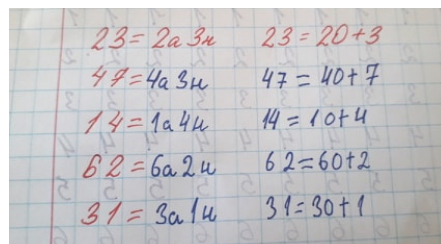 23 = 2а3н 23 = 20+3
47 = 4а3н 47 = 40+7
14 = 1а4н 14 = 10+4
62 = 6а2н 62 = 60+2
31 = 3а1н 31 = 30+1